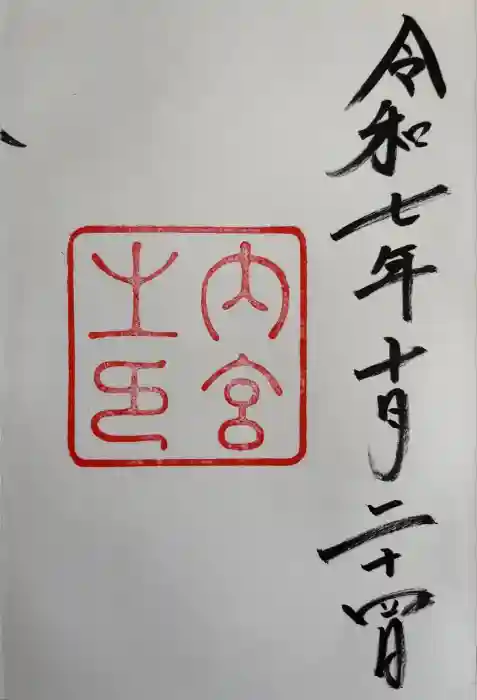 令和七年十月二十四日
内宮
之印